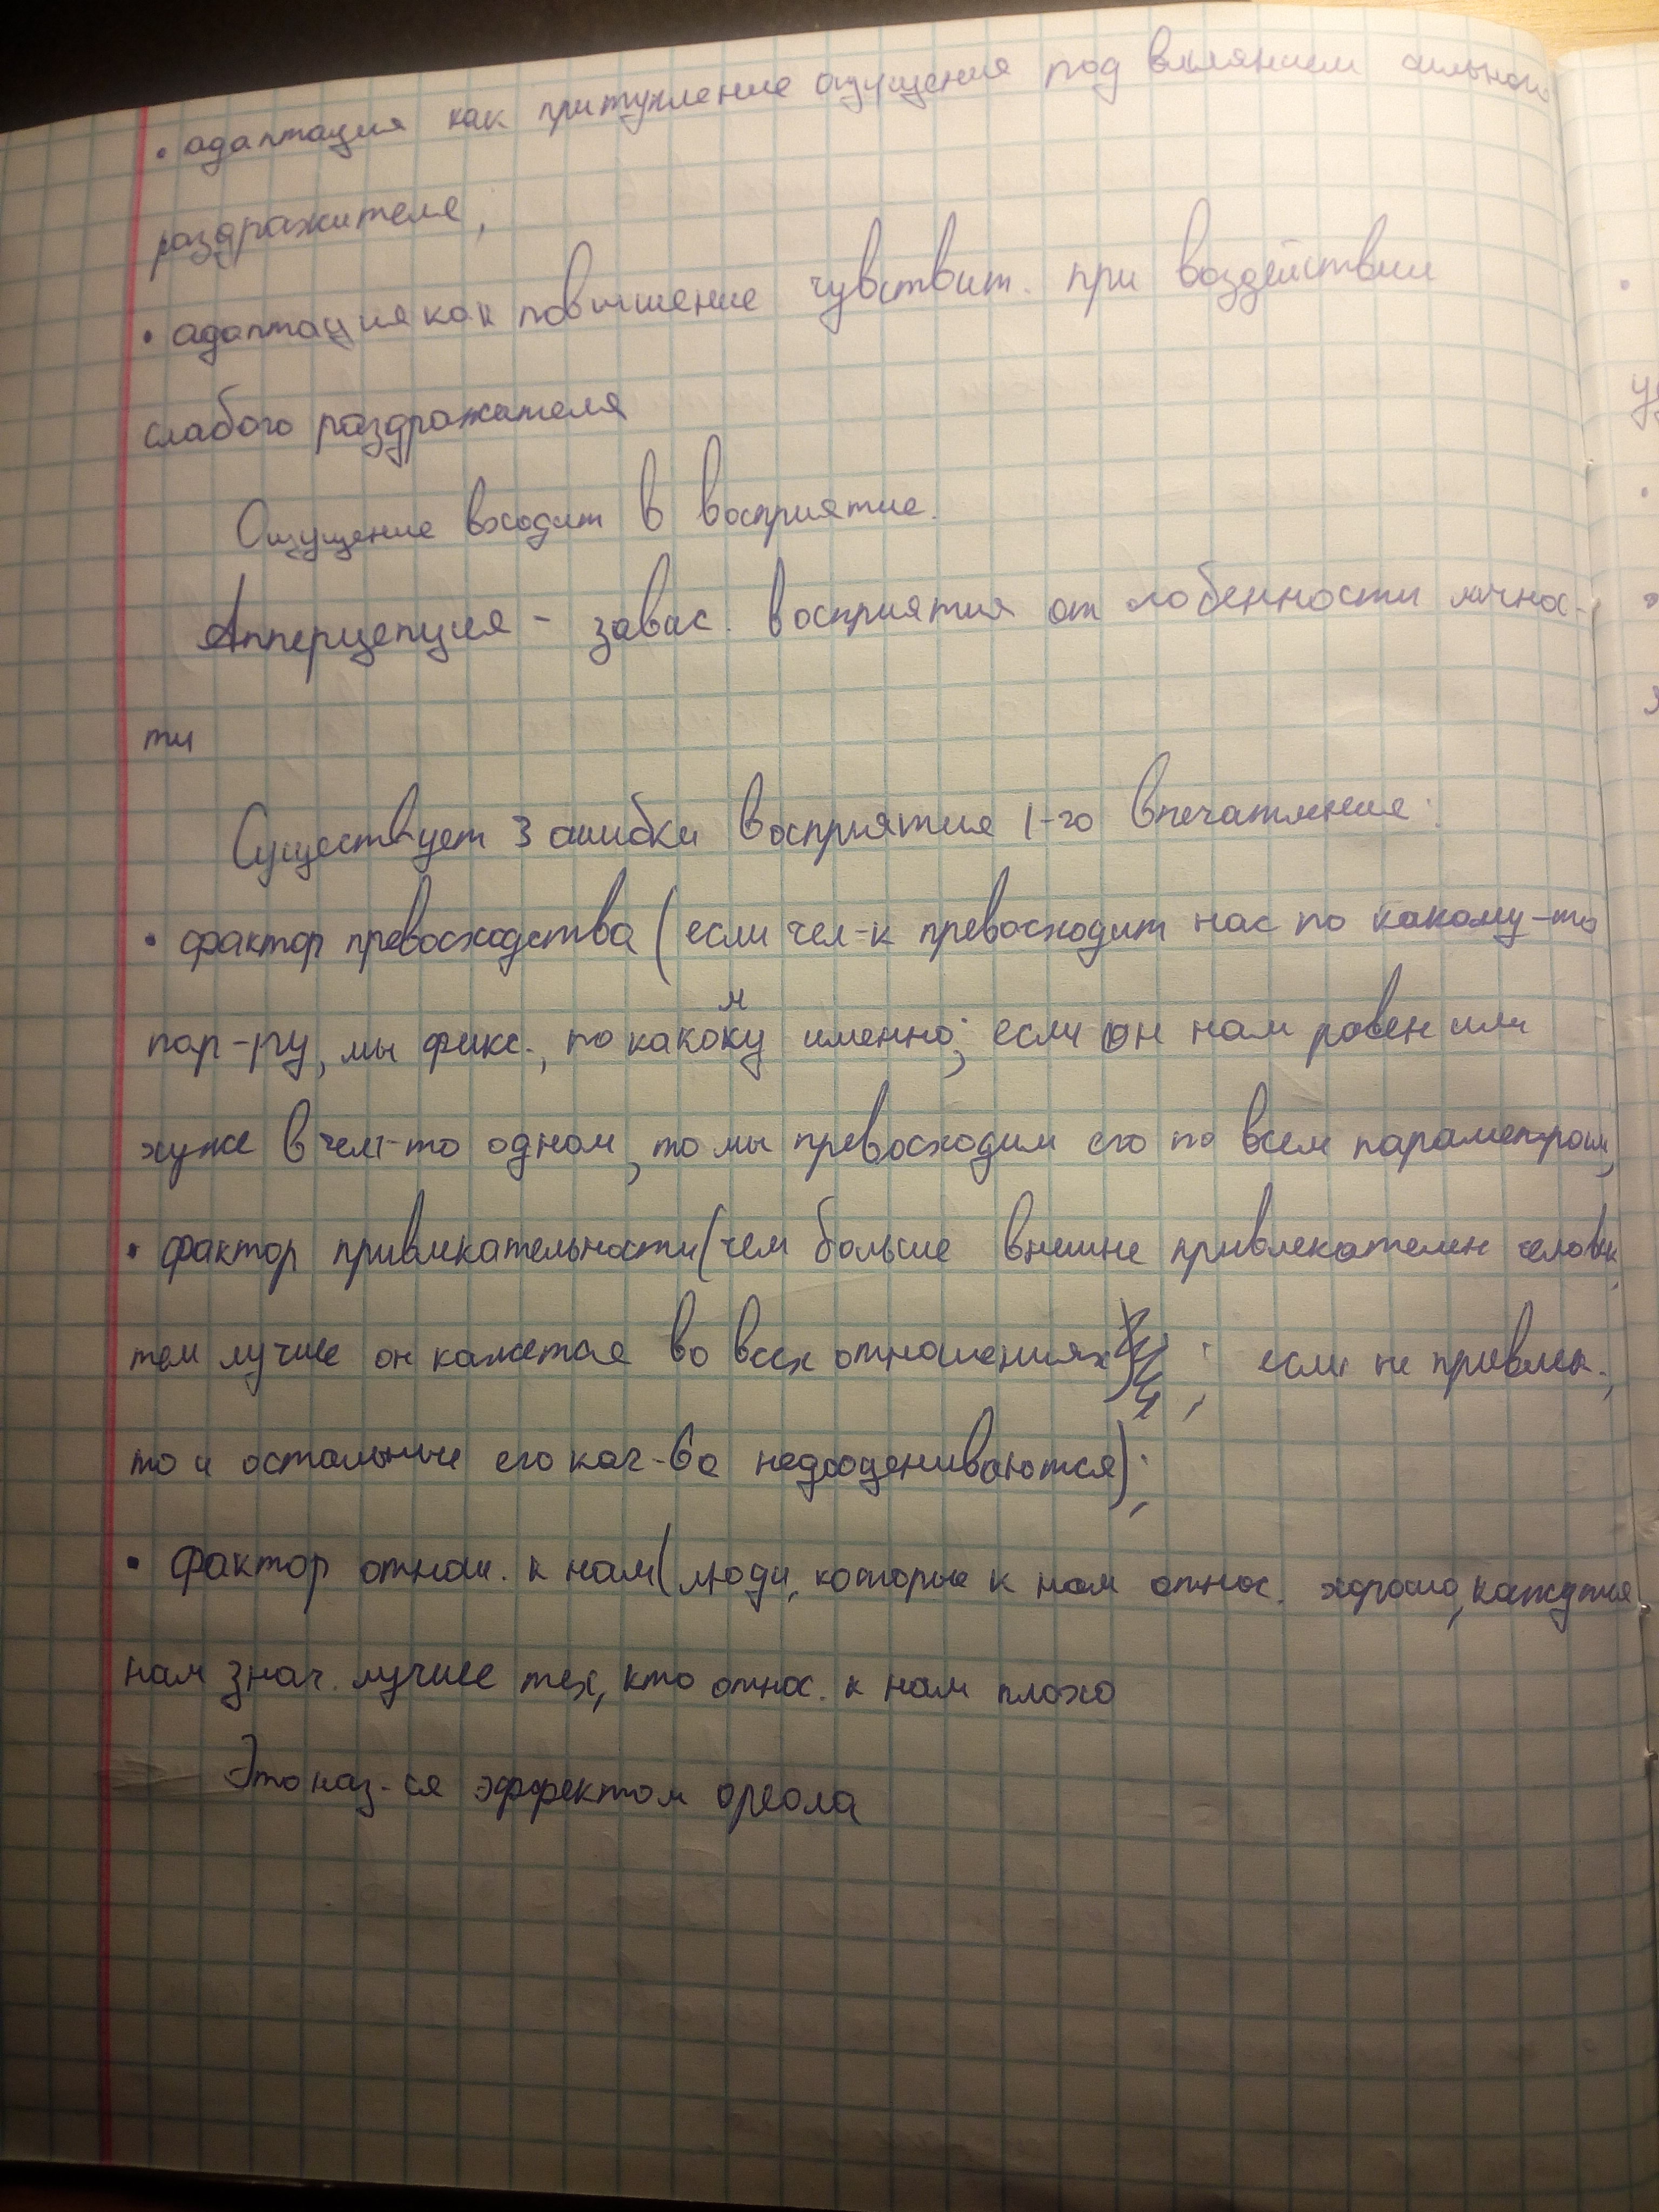 • адаптация как притупление ощущения под влиянием сильного
раздражителя;
• адаптация как повышение чувствит. при воздействии
слабого раздражателя
Ощущение входит в восприятие.
Апперцепция - завис. восприятия от особенности личнос-
ти
Существует 3 ошибки восприятие 1-го впечатление:
• фактор превосходства (если чел-к превосходит нас по какому-то
пар-ру, мы фикс., по какому именно; если он нам равен или
хуже в чем-то одном, то мы превосходим его по всем параметрам,
• фактор привлекательности (чем больше внешне привлекателен человек,
тем лучше он кажется во всех отношениях; если не привлек.,
то и остальные его кач-ва недооцениваются);
• фактор отнош. к нам (люди, которые к нам относ. хорошо, кажутся
нам знач. лучше тех, кто относ. к нам плохо
Это наз-ся эффектом ореола